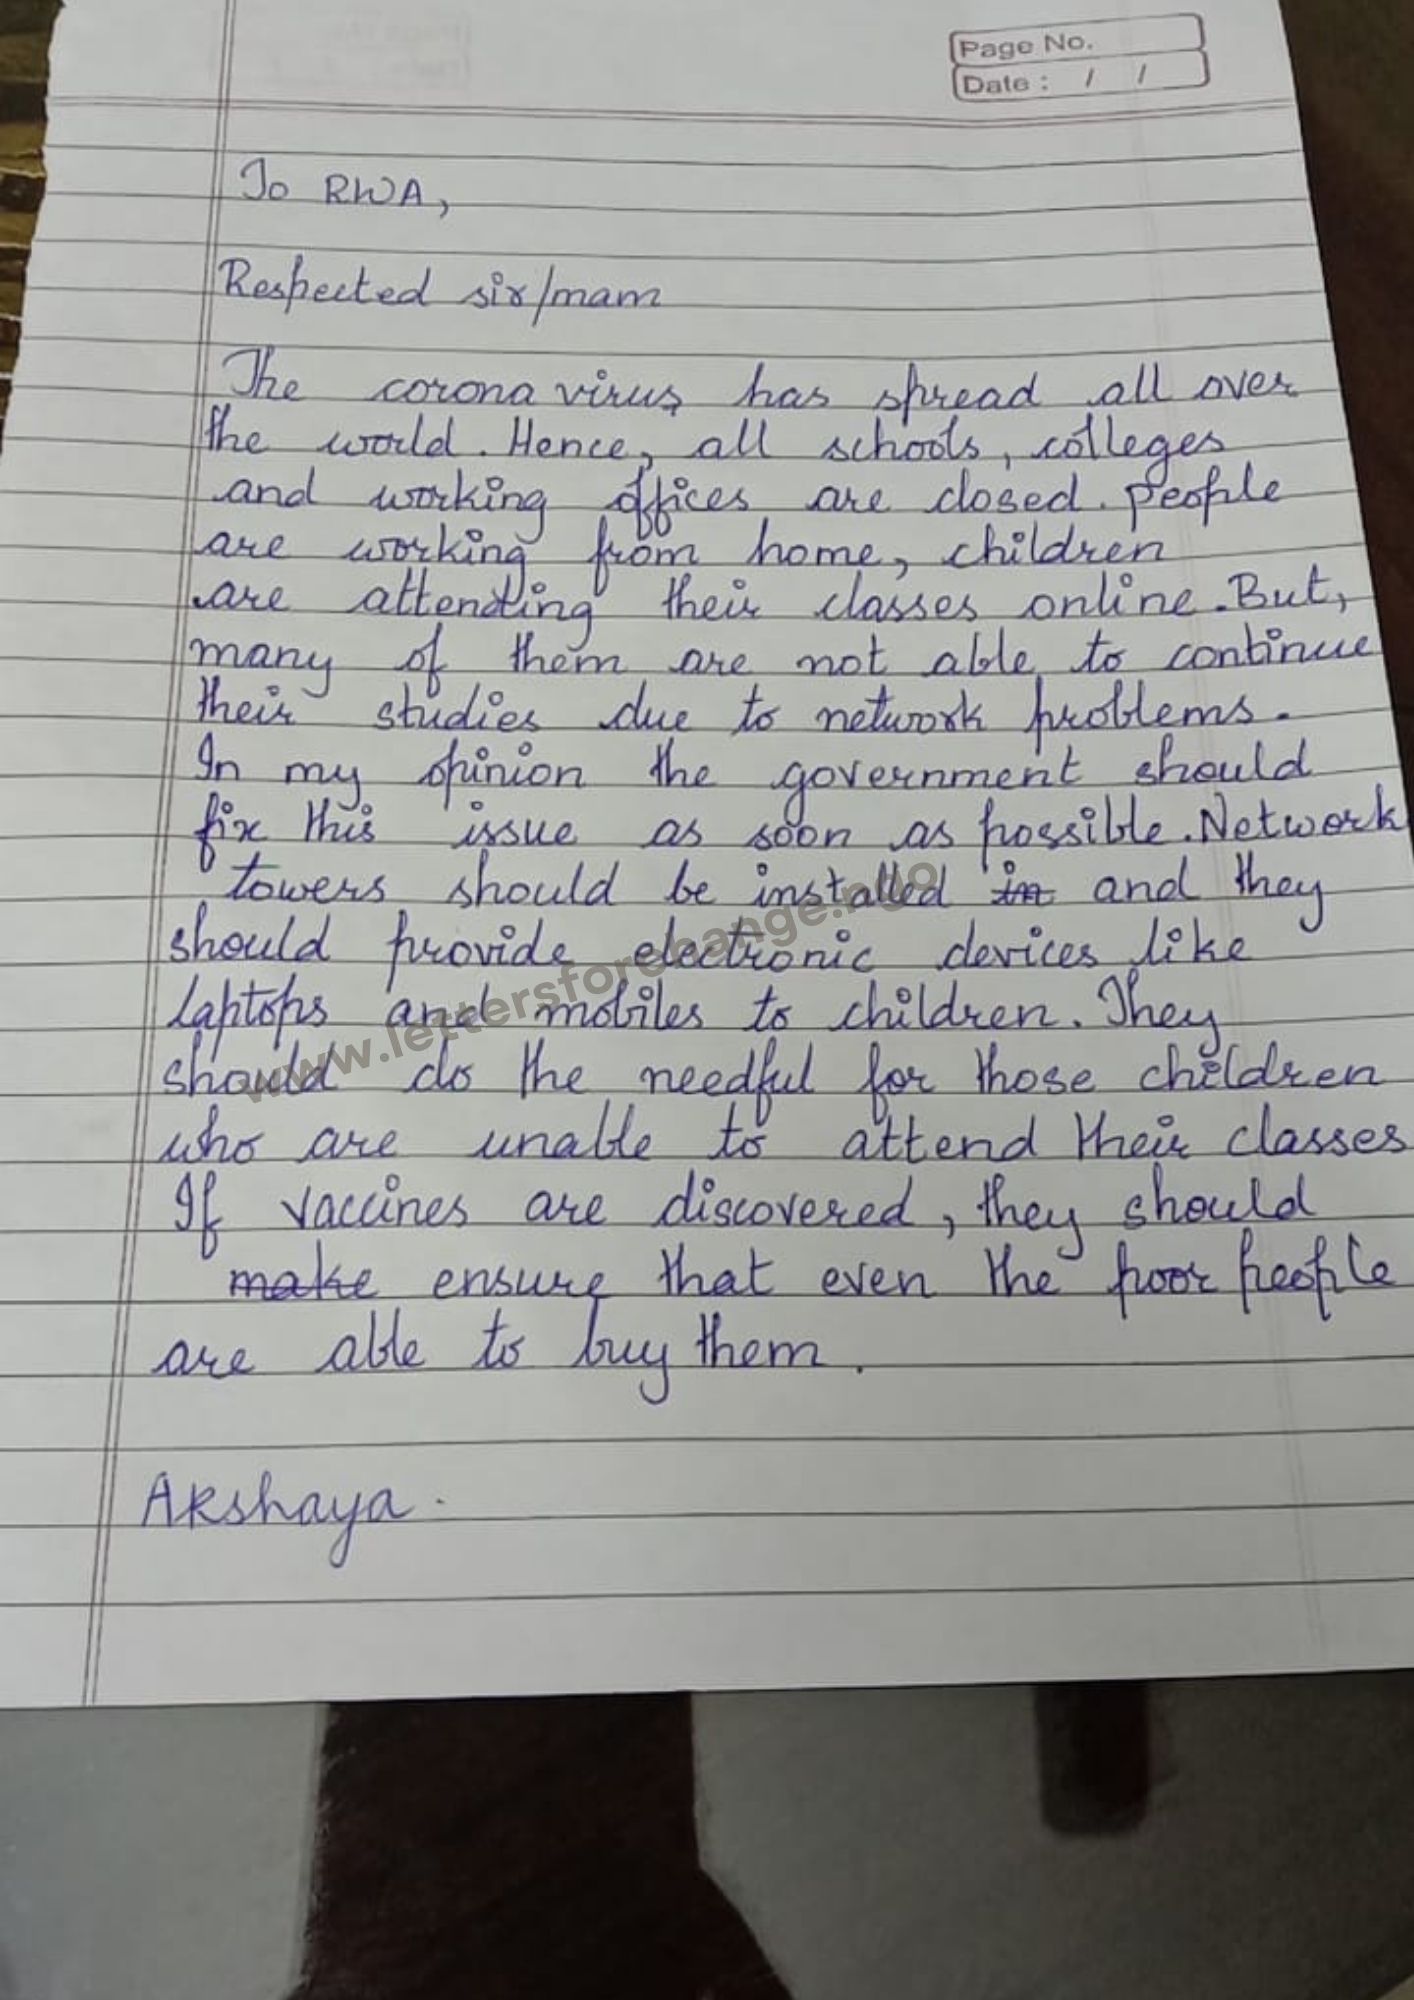 Page No.
Date : / /
To RWA,
Respected sir/mam
The corona virus has spread all over
the world. Hence, all schools, colleges
and working offices are closed. People
are working from home, children
are attending their classes online. But,
many of them are not able to continue
their studies due to network problems.
In my opinion the government should
fix this issue as soon as possible. Network
towers should be installed in and they
should provide electronic devices like
laptops and mobiles to children. They
should do the needful for those children
who are unable to attend their classes
If vaccines are discovered, they should
make ensure that even the poor people
are able to buy them.
Akshaya.
www.lettersforchange.ngo